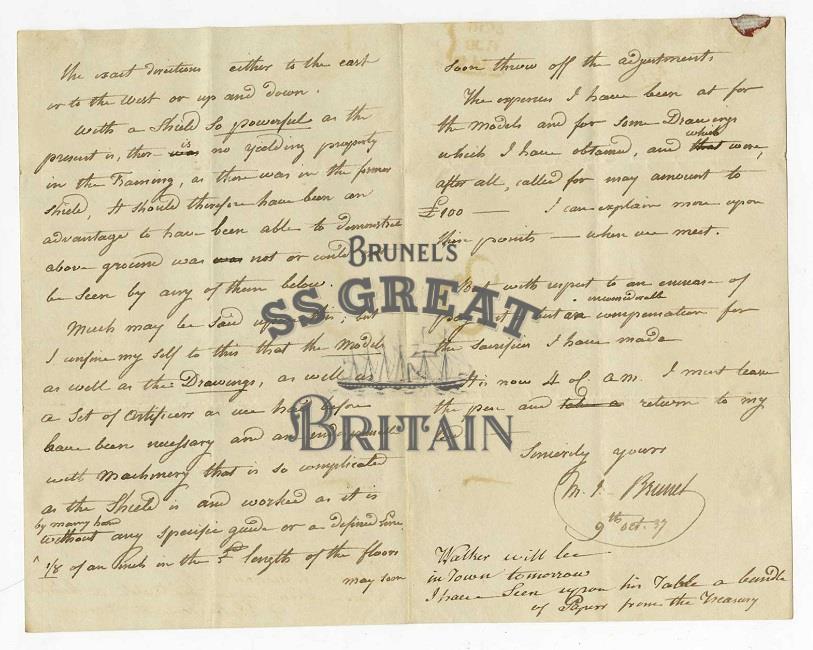 the exact directions either to the east
or to the West or up and down.
With a Shield so powerful as the
present is, there was is no yielding property
in the Framing, as there was in the former
Shield, It should therefore have been an
advantage to have been able to demonstrate
above ground was was not or could
be seen by any of them below.
Much may be said upon this; but
I confine my self to this that the Models
as well as the Drawings, as well as
a Set of Artificers as we had before
have been necessary and an
with Machinery that is so complicated
as the Shield is and worked as it is
by many hands
without any specific guide or a defined line.
1/8 of an inch in the lengths of the floors
may soon
soon throw off the adjustments
The expenses I have been at for
the Models and for some Drawings
which
which I have obtained, and that were,
after all, called for may amount to
£100 — I can explain more upon
these points — when we meet.
But with respect to an increase of
pay, it but an compensation for
the sacrifices I have made
It is now 4 o'c. a.m. I must leave
the pen and take a return to my
bed
Sincerely yours
M. I. Brunel
9th Oct. 37
Walker will be
in Town tomorrow
I have seen upon his Table a bundle
of Papers from the Treasury
BRUNEL'S
SS GREAT
BRITAIN